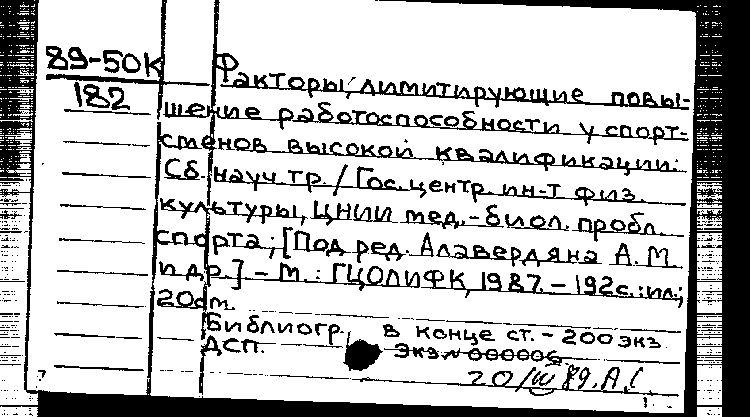 89-50К
182
Факторы, лимитирующие повы-
шение работоспособности у спорт-
сменов высокой квалификации:
Сб. науч. тр. / Гос. центр. ин-т физ.
культуры, ЦНИИ мед.-биол. пробл.
спорта; [Под ред. Алавердяна А. М.
и др.] - М.: ГЦОЛИФК, 1987. - 192с.: ил.;
20см.
Библиогр. в конце ст. - 200 экз
ДСП. Экз № 000006
20/III 89.